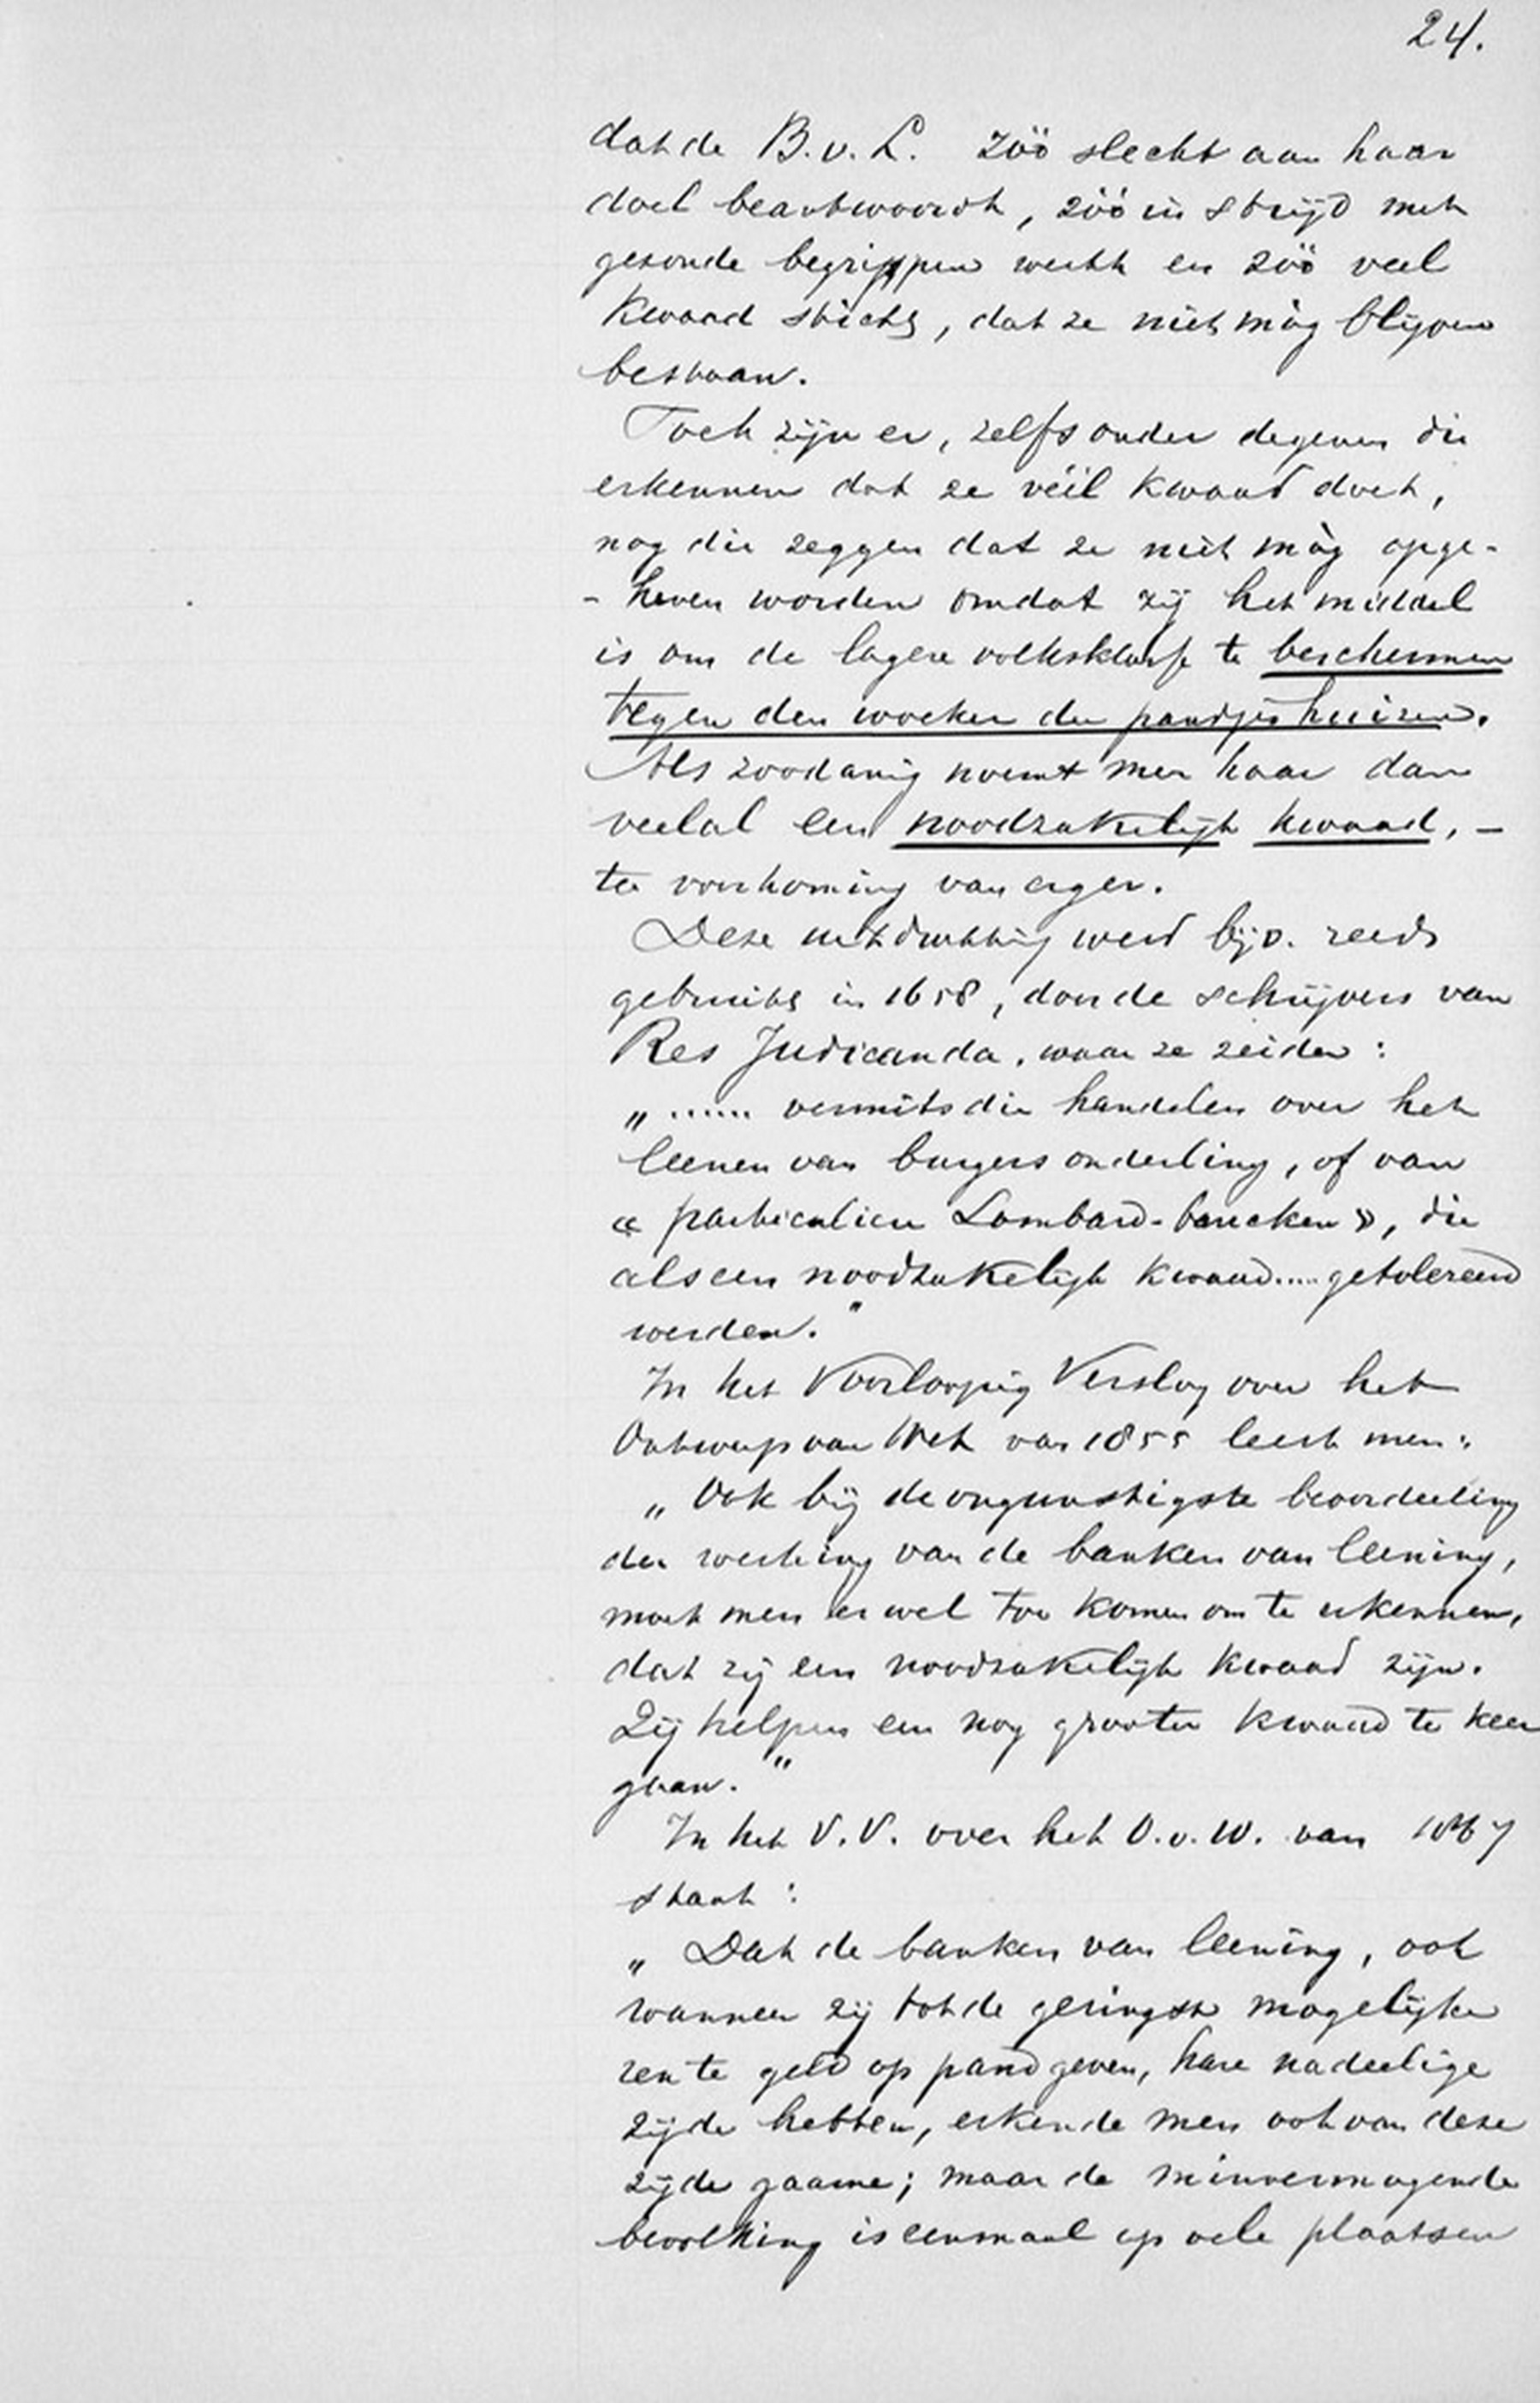 24.
dat de B.v.L. zóó slecht aan haar
doel beantwoordt, zóó in strijd met
gezonde begrippen werkt en zóó veel
kwaad sticht, dat ze niet màg blijven
bestaan.
Toch zijn er, zelfs onder degenen die
erkennen dat ze véél kwaad doet,
nog die zeggen dat ze niet màg opge-
- heven worden omdat zij het middel
is om de lagere volksklasse te beschermen
tegen den woeker der pandjeshuizen.
Als zoodanig noemt men haar dan
veelal een noodzakelijk kwaad, -
ter voorkoming van erger.
Deze uitdrukking werd bijv. reeds
gebruikt in 1658, door de schrijvers van
Res Judicanda, waar ze zeiden:
„...... vermits die handelen over het
leenen van burgers onderling, of van
« particuliere Lombard-bancken », die
als een noodzakelijk kwaad.... getolereerd
werden."
In het Voorloopig Verslag over het
Ontwerp van Wet van 1855 leest men:
„Ook bij de ongunstigste beoordeeling
der werking van de banken van leening,
moet men er wel toe komen om te erkennen,
dat zij een noodzakelijk kwaad zijn.
Zij helpen een nog grooter kwaad te keer
gaan."
In het V.V. over het O.v.W. van 1867
staat:
„Dat de banken van leening, ook
wanneer zij tot de geringst mogelijke
rente geld op pand geven, hare nadeelige
zijde hebben, erkende men ook van deze
zijde gaarne; maar de minvermogende
bevolking is eenmaal op vele plaatsen